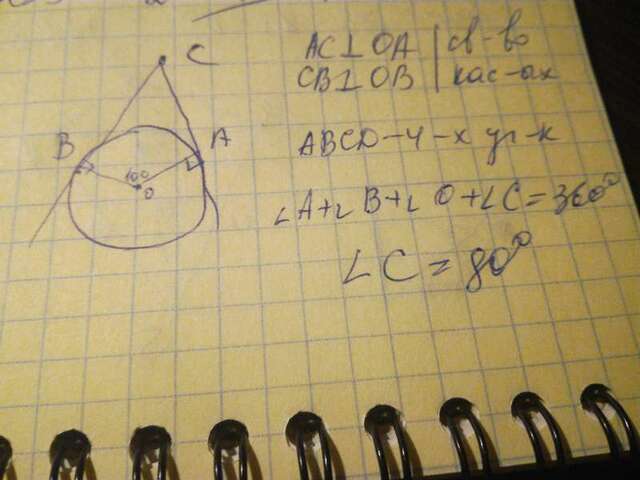 C
B
A
100
O
AC⊥OA | св-во
CB⊥OB | кас-ых
ABCD-4-х уг-к
∠A+∠B+∠O+∠C=360°
∠C=80°